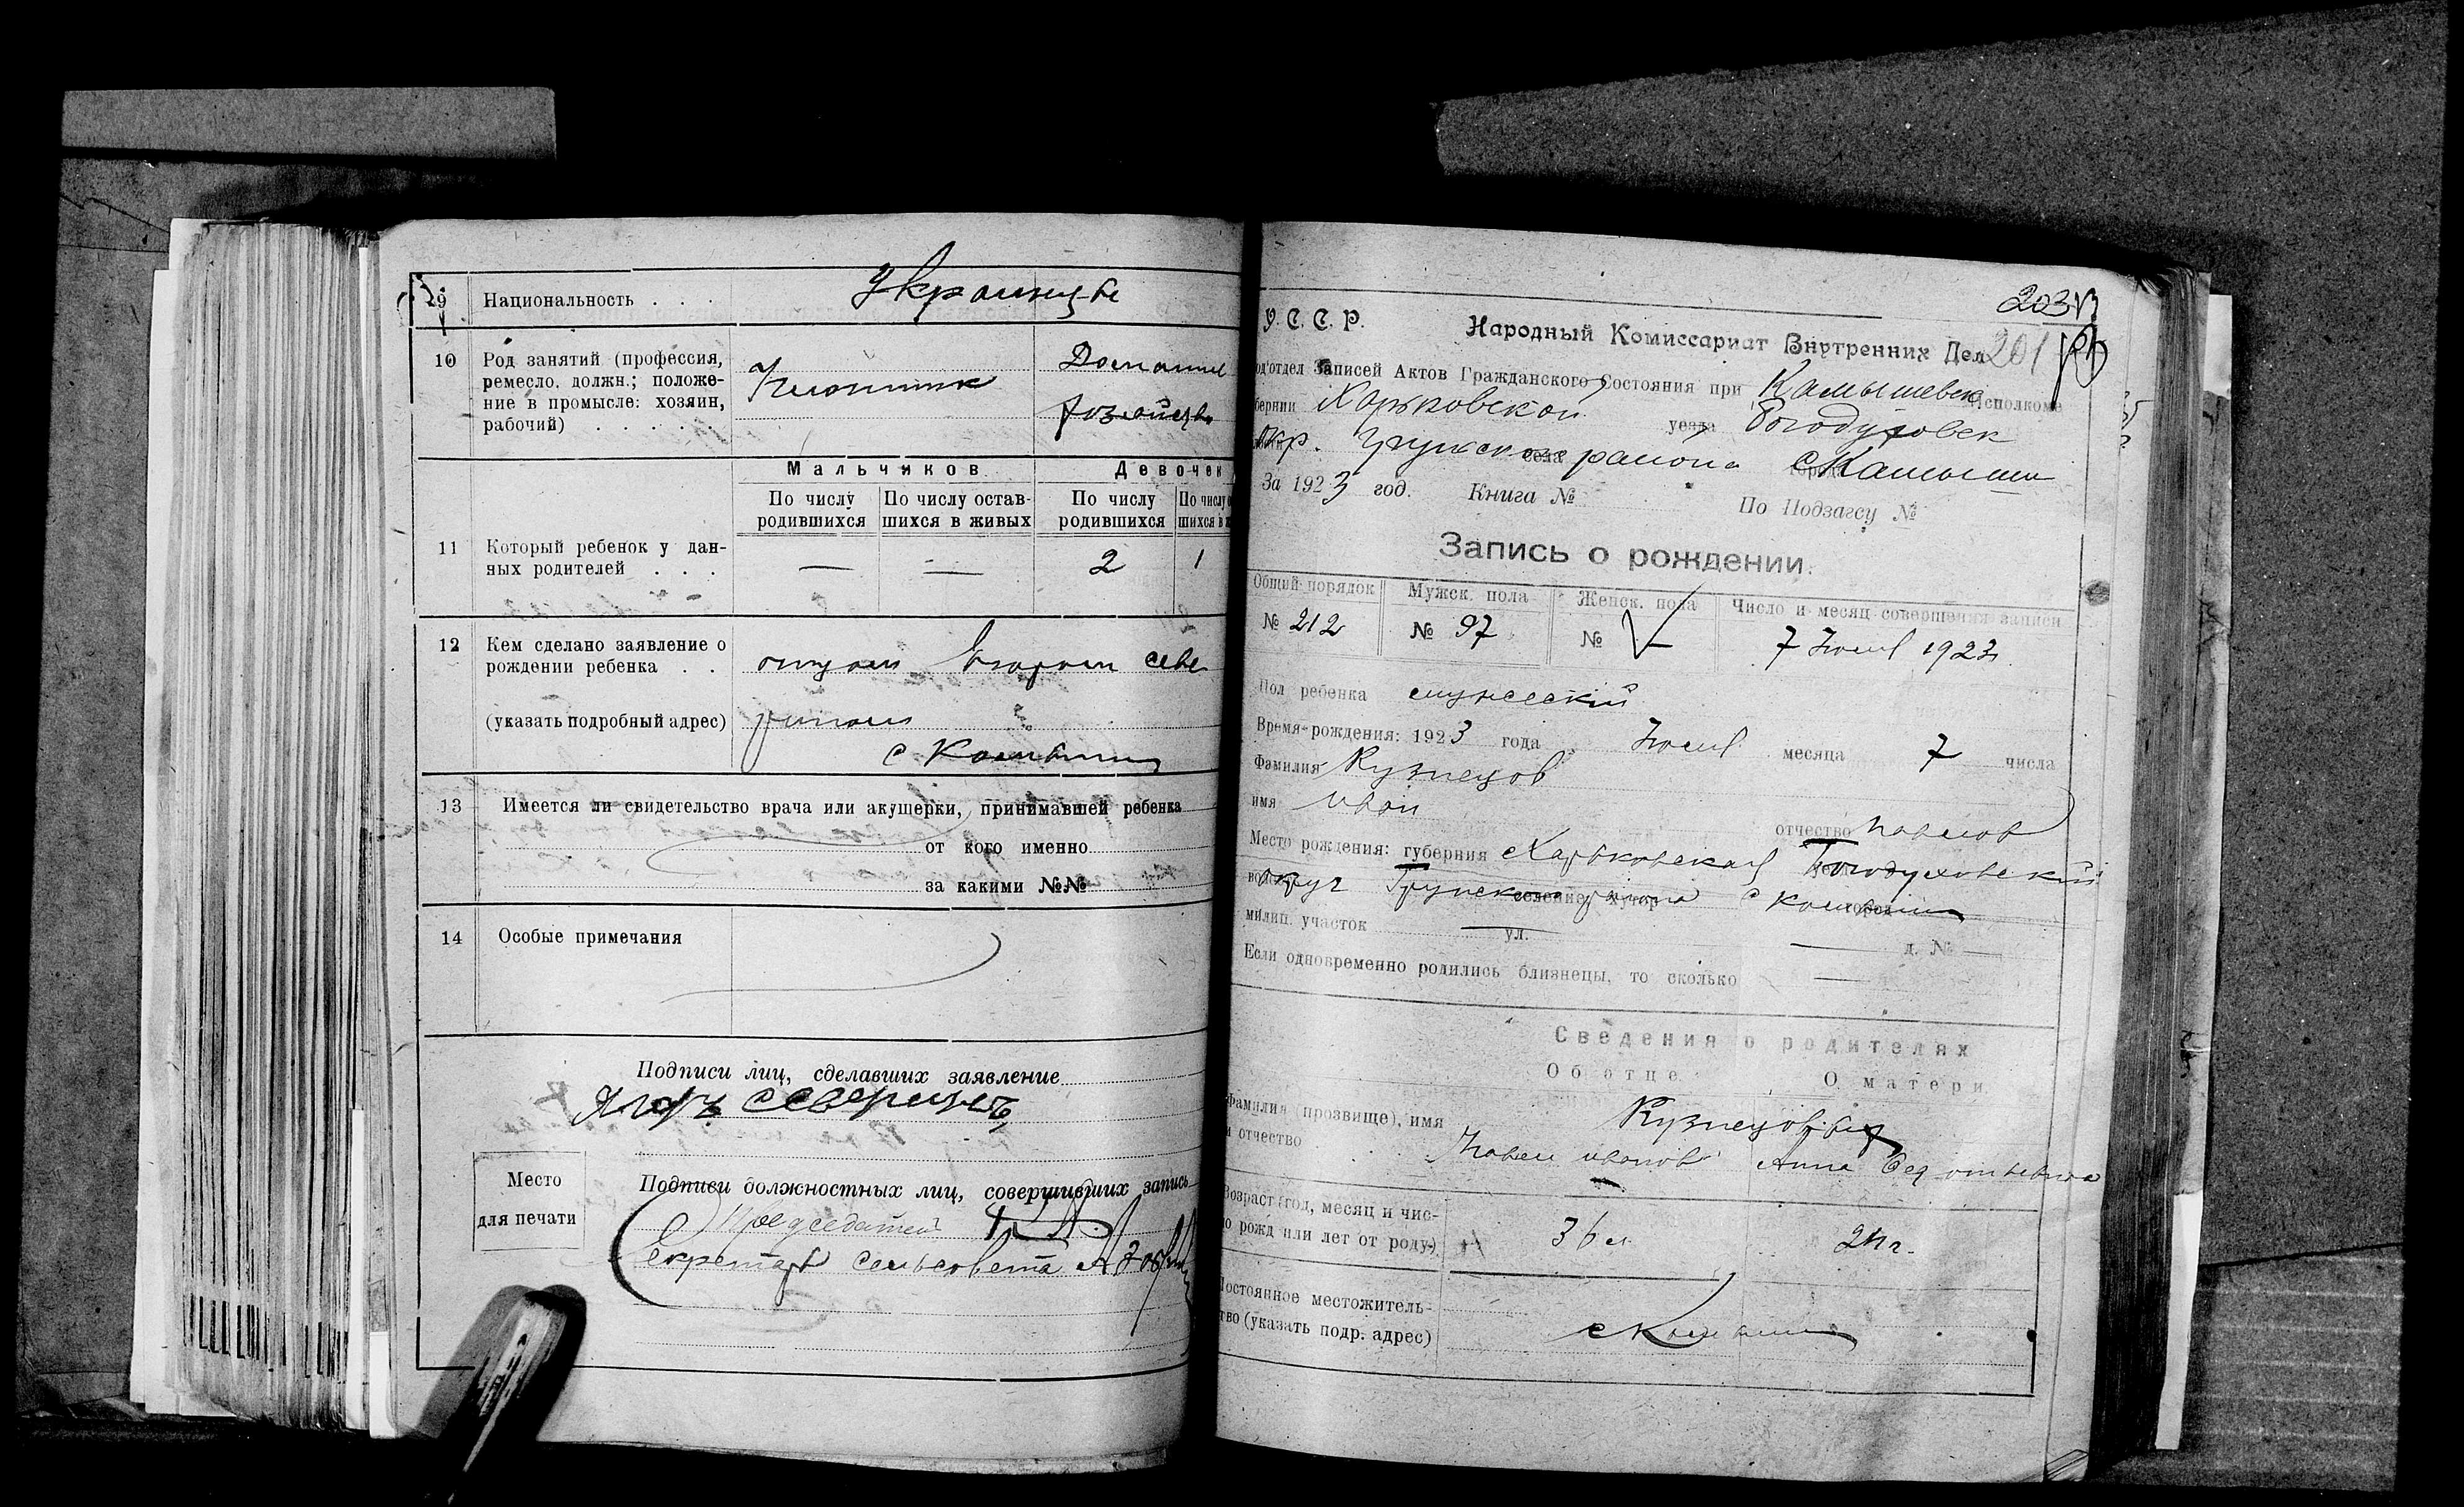 9 Национальность . . . Украинцы
10 Род занятий (профессия, ремесло, должн.; положе-
ние в промысле: хозяин,
рабочий) . . . . .
Домашнее
хозяйство
Мальчиков Девочек
По числу родившихся По числу остав-
шихся в живых По числу родившихся По числу
11 Который ребенок у дан-
ных родителей . . . — — 2 1
12 Кем сделано заявление о
рождении ребенка . . отцом Егором Севе
(указать подробный адрес) риным
с Камыши
13 Имеется ли свидетельство врача или акушерки, принимавшей ребенка
от кого именно
за какими №№
14 Особые примечания
Подписи лиц, сделавших заявление
Место
для печати
Подписи должностных лиц, совершивших запись
Председатель
Секретарь сельсовета
203
201
У. С. С. Р. Народный Комиссариат Внутренних Дел
Записей Актов Гражданского Состояния при Камышевск Исполкоме
Харьковской уезда Богодуховск
окр. района с Камыши
За 1923 год. Книга № По Подзагсу №
Запись о рождении.
Общий порядок Мужск. пола Женск. пола Число и месяц совершения записи
№ 212 № 97 № — 7 Июля 1923
Пол ребенка мужеский
Время рождения: 1923 года Июля месяца 7 числа
Фамилия Кузнецов
имя Иван
отчество Павлов
Место рождения: губерния Харьковская Богодуховский
округ района с Камыши
милиц. участок — ул. — д. № —
Если одновременно родились близнецы, то сколько —
Сведения о родителях
Об отце О матери
Фамилия (прозвище), имя
и отчество
Кузнецовы
Павел Иванов Анна
Возраст (год, месяц и чис-
ло рожд или лет от роду) 36 л 24 г.
Постоянное местожитель-
тво (указать подр. адрес) с Камыши